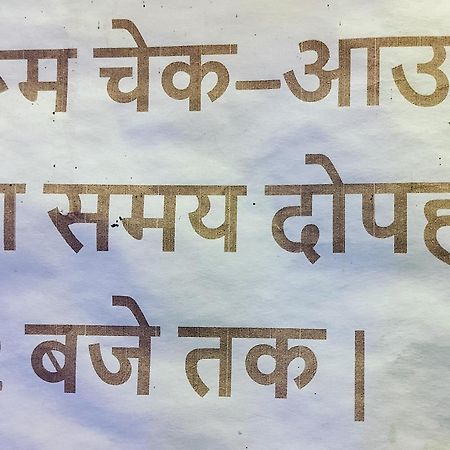 चेक–आउ
समय दोपह
बजे तक।